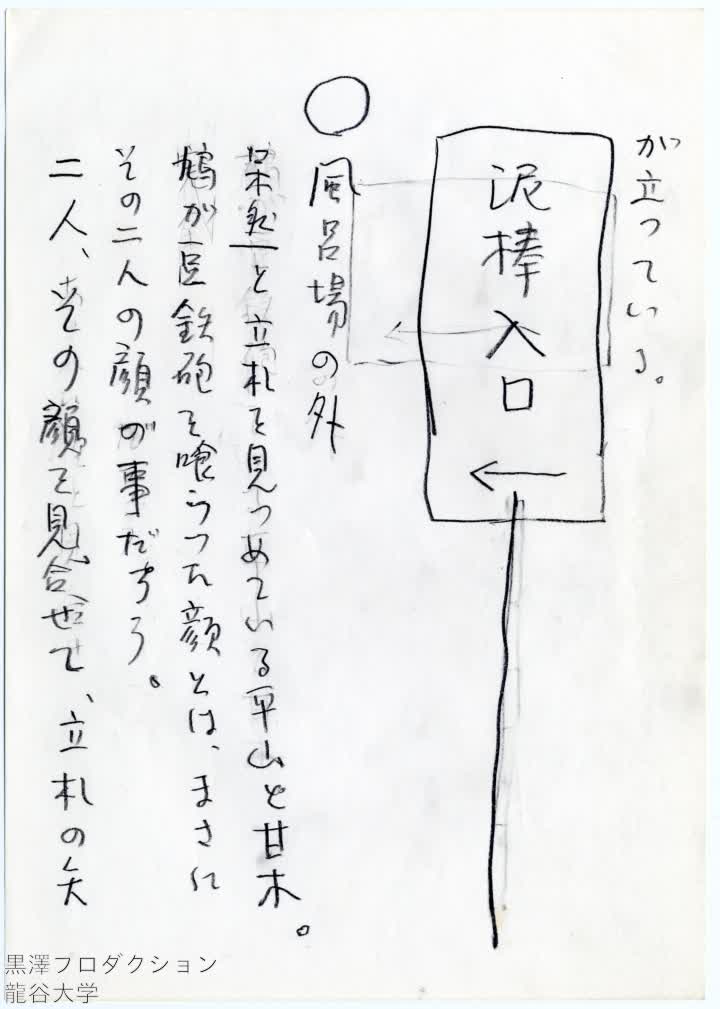 が立っている。
泥棒入口
←
○
風呂場の外
呆然と立札を見つめている平山と甘木。
鳩が豆鉄砲を喰らった顔とは、まさに
その二人の顔の事だろう。
二人、その顔を見合せて、立札の矢
黒澤プロダクション
龍谷大学